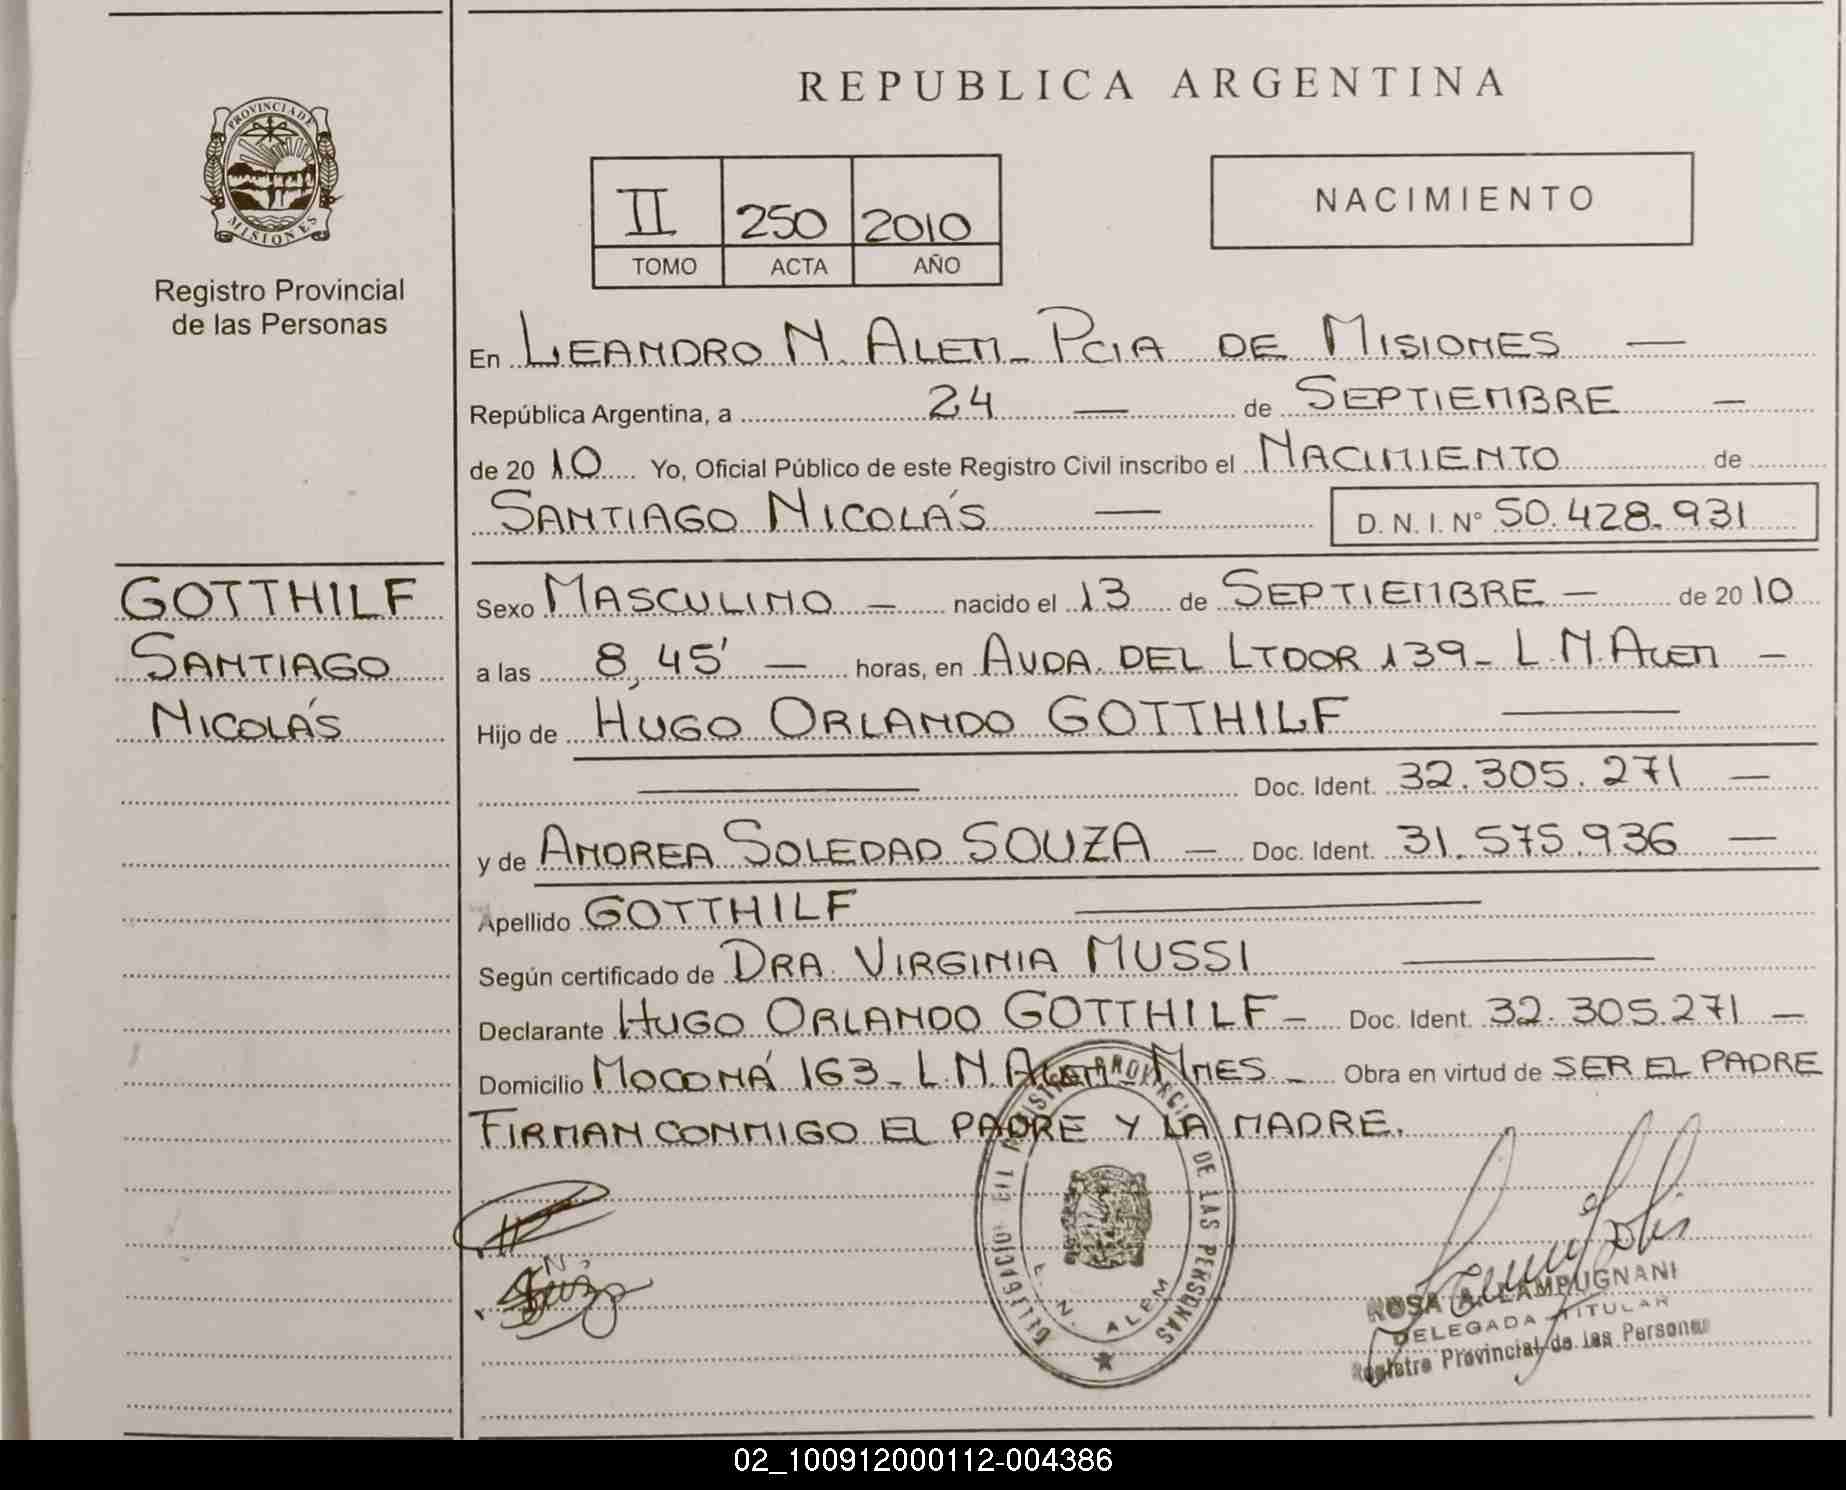 PROVINCIA DE
MISIONES
Registro Provincial
de las Personas
GOTTHILF
SANTIAGO
NICOLÁS
REPUBLICA ARGENTINA
II 250 2010
TOMO ACTA AÑO
NACIMIENTO
En LEANDRO N. ALEM - PCIA DE MISIONES —
República Argentina, a 24 — de SEPTIEMBRE —
de 20 10 Yo, Oficial Público de este Registro Civil inscribo el NACIMIENTO de
SANTIAGO NICOLÁS — D. N. I. N° 50.428.931
Sexo MASCULINO — nacido el 13 de SEPTIEMBRE — de 20 10
a las 8,45' — horas, en AVDA. DEL LTDOR 139 - L.N. ALEM —
Hijo de HUGO ORLANDO GOTTHILF —
— Doc. Ident. 32.305.271 —
y de ANDREA SOLEDAD SOUZA — Doc. Ident. 31.575.936 —
Apellido GOTTHILF —
Según certificado de DRA. VIRGINIA MUSSI —
Declarante HUGO ORLANDO GOTTHILF — Doc. Ident. 32.305.271 —
Domicilio MOCONÁ 163 - L.N. ALEM - MNES — Obra en virtud de SER EL PADRE
FIRMAN CONMIGO EL PADRE Y LA MADRE.
DELEGACION DEL REGISTRO PROVINCIAL DE LAS PERSONAS
L. N. ALEM
ROSA A. LAMPUGNANI
DELEGADA TITULAR
Registro Provincial de las Personas
02_100912000112-004386